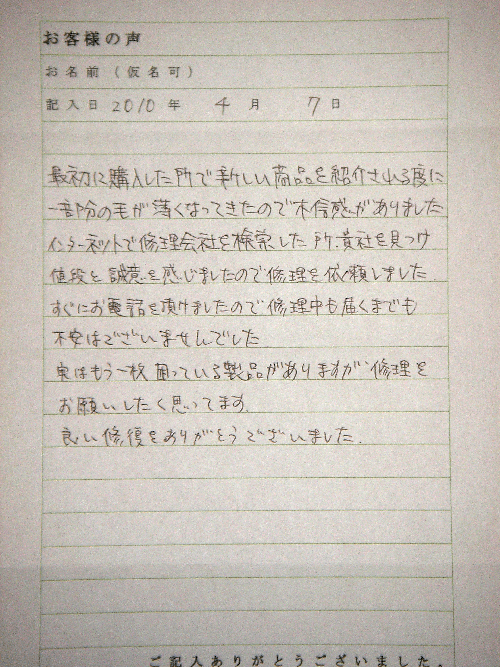 お客様の声
お名前（仮名可）
記入日 2010 年 4 月 7 日
最初に購入した所で新しい商品を紹介される度に
一部分の毛が薄くなってきたので不信感がありました
インターネットで修理会社を検索した所、貴社を見つけ
値段と誠意を感じましたので修理を依頼しました.
すぐにお電話を頂けましたので修理中も届くまでも
不安はございませんでした.
実はもう一枚困っている製品がありますが修理を
お願いしたく思ってます.
良い修復をありがとうございました.
ご記入ありがとうございました.